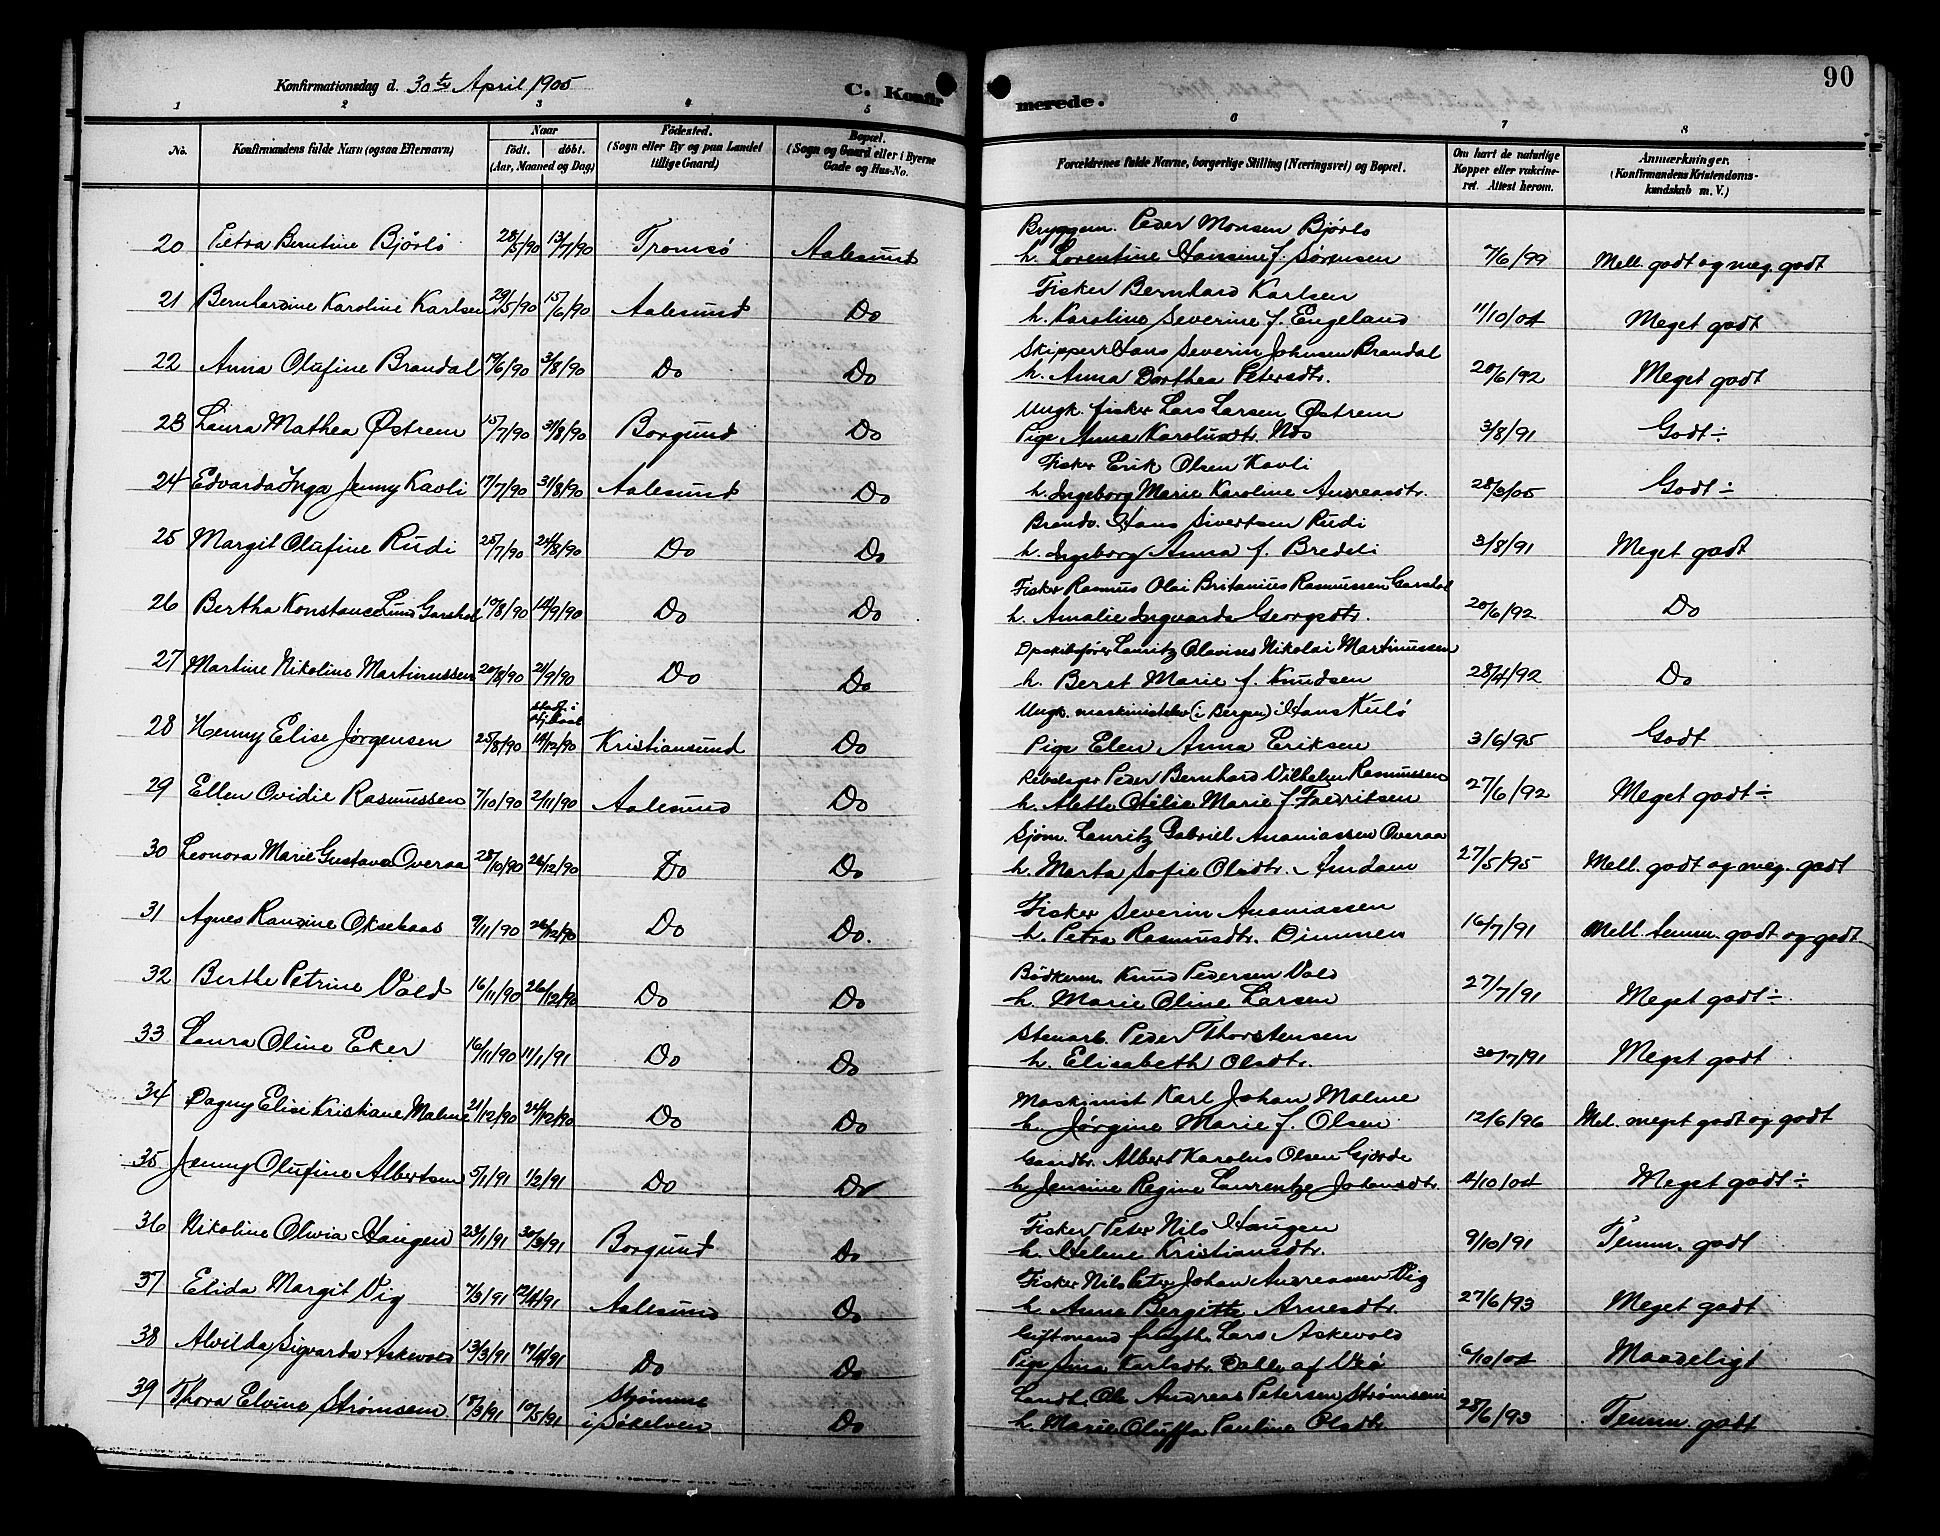 90
Konfirmationsdag d. 30te April 1905
C. Konfirmerede.
1 2 3 4 5 6 7 8
No. Konfirmandens fulde Navn (ogsaa Efternavn) Naar födt. döbt. (Aar, Maaned og Dag) Födested. (Sogn eller By og paa Landet tillige Gaard) Bopæl. (Sogn og Gaard eller i Byerne Gade og Hus-No. Forældrenes fulde Navne, borgerlige Stilling (Næringsvei) og Bopæl. Om havt de naturlige Kopper eller vakcineret. Attest herom. Anmærkninger. (Konfirmandens Kristendomskundskab m. V.)
Bryggem. Peder Monsen Bjørlo
20 Petra Berntine Bjørlo 28/5/90 13/7/90 Tromsö Aalesund h. Lorentine Hansine f. Sørensen 7/6/99 Mell. godt og meg. godt
Fisker Bernhard Karlsen
21 Bernhardine Karoline Karlsen 29/5/90 15/6/90 Aalesund Do h. Karoline Severine f. Engeland 11/10/04 Meget godt
Skipper Hans Severin Johnsen Brandal
22 Anna Olufine Brandal 19/6/90 3/8/90 Do Do h. Anna Dorthea Petersdtr. 20/6/92 Meget godt
Ungk. fisker Lars Larsen Østrem
23 Laura Mathea Østrem 15/7/90 31/8/90 Borgund Do Pige Anna Karolusdtr. Nös 3/8/91 Godt ÷
Fisker Erik Olsen Kavli
24 Edvarda Inga Jenny Kavli 17/7/90 31/8/90 Aalesund Do h. Ingeborg Marie Karoline Andreasdtr. 28/3/05 Godt ÷
Brandv. Hans Sivertsen Rudi
25 Margit Olufine Rudi 25/7/90 24/8/90 Do Do h. Ingeborg Anna f. Bredeli 3/8/91 Meget godt
Fisker Rasmus Olai Britanius Rasmussen Garshol
26 Bertha Konstance Lund Garshol 10/8/90 14/9/90 Do Do h. Amalie Ingvarda Georgsdtr. 20/6/92 Do
Dpskibsfører Lauritz Olavises Nikolai Martinussen
27 Martine Nikoline Martinussen 20/8/90 21/9/90 Do Do h. Beret Marie f. Knudsen 28/4/92 Do
Ungk. maskinistelev (i Bergen) Hans Kulö
28 Henny Elise Jørgensen 25/8/90 stadf. i 14/12/90 Kristiansund Do Pige Elen Anna Eriksen 3/6/95 Godt
Rebslager Peder Bernhard Vilhelm Rasmussen
29 Ellen Ovidie Rasmussen 7/10/90 2/11/90 Aalesund Do h. Alette Otilie Marie f. Fredriksen 27/6/92 Meget godt ÷
Sjøm. Lauritz Gabriel Ananiassen Overaa
30 Leonora Marie Gustava Overaa 28/10/90 26/12/90 Do Do h. Marta Sofie Olsdtr. Amdam 27/5/95 Mell. godt og meg. godt
Fisker Severin Ananiassen
31 Agnes Randine Oksebaas 9/11/90 26/12/90 Do Do. h. Petra Rasmusdtr. Dimmen 16/7/91 Mell. temm. godt og godt
Bödkerm. Knud Pedersen Vold
32 Berthe Petrine Vold 16/11/90 26/12/90 Do Do h. Marie Oline Larsen 27/7/91 Meget godt ÷
Stenarb. Peder Thorstensen
33 Laura Oline Eker 16/11/90 11/1/91 Do Do h. Elisabeth Olsdtr. 30/7/91 Meget godt
Maskinist Karl Johan Malme
34 Dagny Elise Kristiane Malme 21/12/90 24/12/90 Do Do h. Jørgine Marie f. Olsen 12/6/96 Mel. meget godt og godt
Gaardbr. Albert Karolus Olsen Gjørde
35 Jenny Olufine Albertsen 5/1/91 1/2/91 Do Do h. Jensine Regine Laurentze Johansdtr. 4/10/04 Meget godt ÷
Fisker Peter Nils Haugen
36 Nikoline Olivia Haugen 23/1/91 30/3/91 Borgund Do h. Helene Kristiansdtr. 9/10/91 Temm. godt
Fisker Nils Peter Johan Andreassen Vig
37 Elida Margit Vig 7/3/91 12/4/91 Aalesund Do h. Anna Bergitte Arnesdtr. 27/6/93 Meget godt
Giftmand Lars Askevold
38 Alvilda Sigvarda Askevold 13/3/91 19/4/91 Do Do Pige Karlsdtr. af Veö 6/10/04 Maadeligt
Landh. Ole Andreas Petersen Strømsem
39 Thora Elvine Strømsem 18/3/91 10/5/91 Strømme i Søkelven Do h. Marie Oluffa Pauline Olsdtr. 28/6/93 Temm. godt